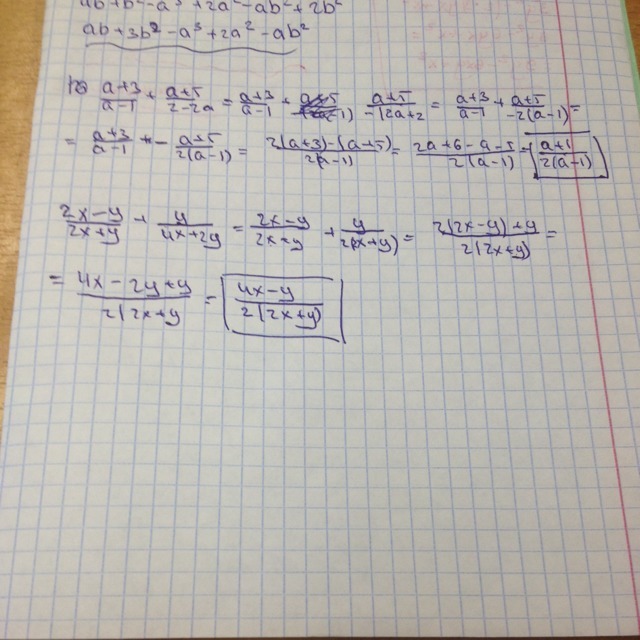 ab+b²-a³+2a²-ab²+2b²
ab+3b²-a³+2a²-ab²
(a+3)/(a-1) + (a+5)/(2-2a) = (a+3)/(a-1) + (a+5)/(-(2a+2) = (a+3)/(a-1) + (a+5)/(-2(a-1)) =
= (a+3)/(a-1) + - (a+5)/(2(a-1)) = (2(a+3)-(a+5))/(2(a-1)) = (2a+6-a-5)/(2(a-1)) = (a+1)/(2(a-1))
(2x-y)/(2x+y) + y/(4x+2y) = (2x-y)/(2x+y) + y/(2(x+y)) = (2(2x-y)+y)/(2(2x+y)) =
= (4x-2y+y)/(2(2x+y) = (4x-y)/(2(2x+y))